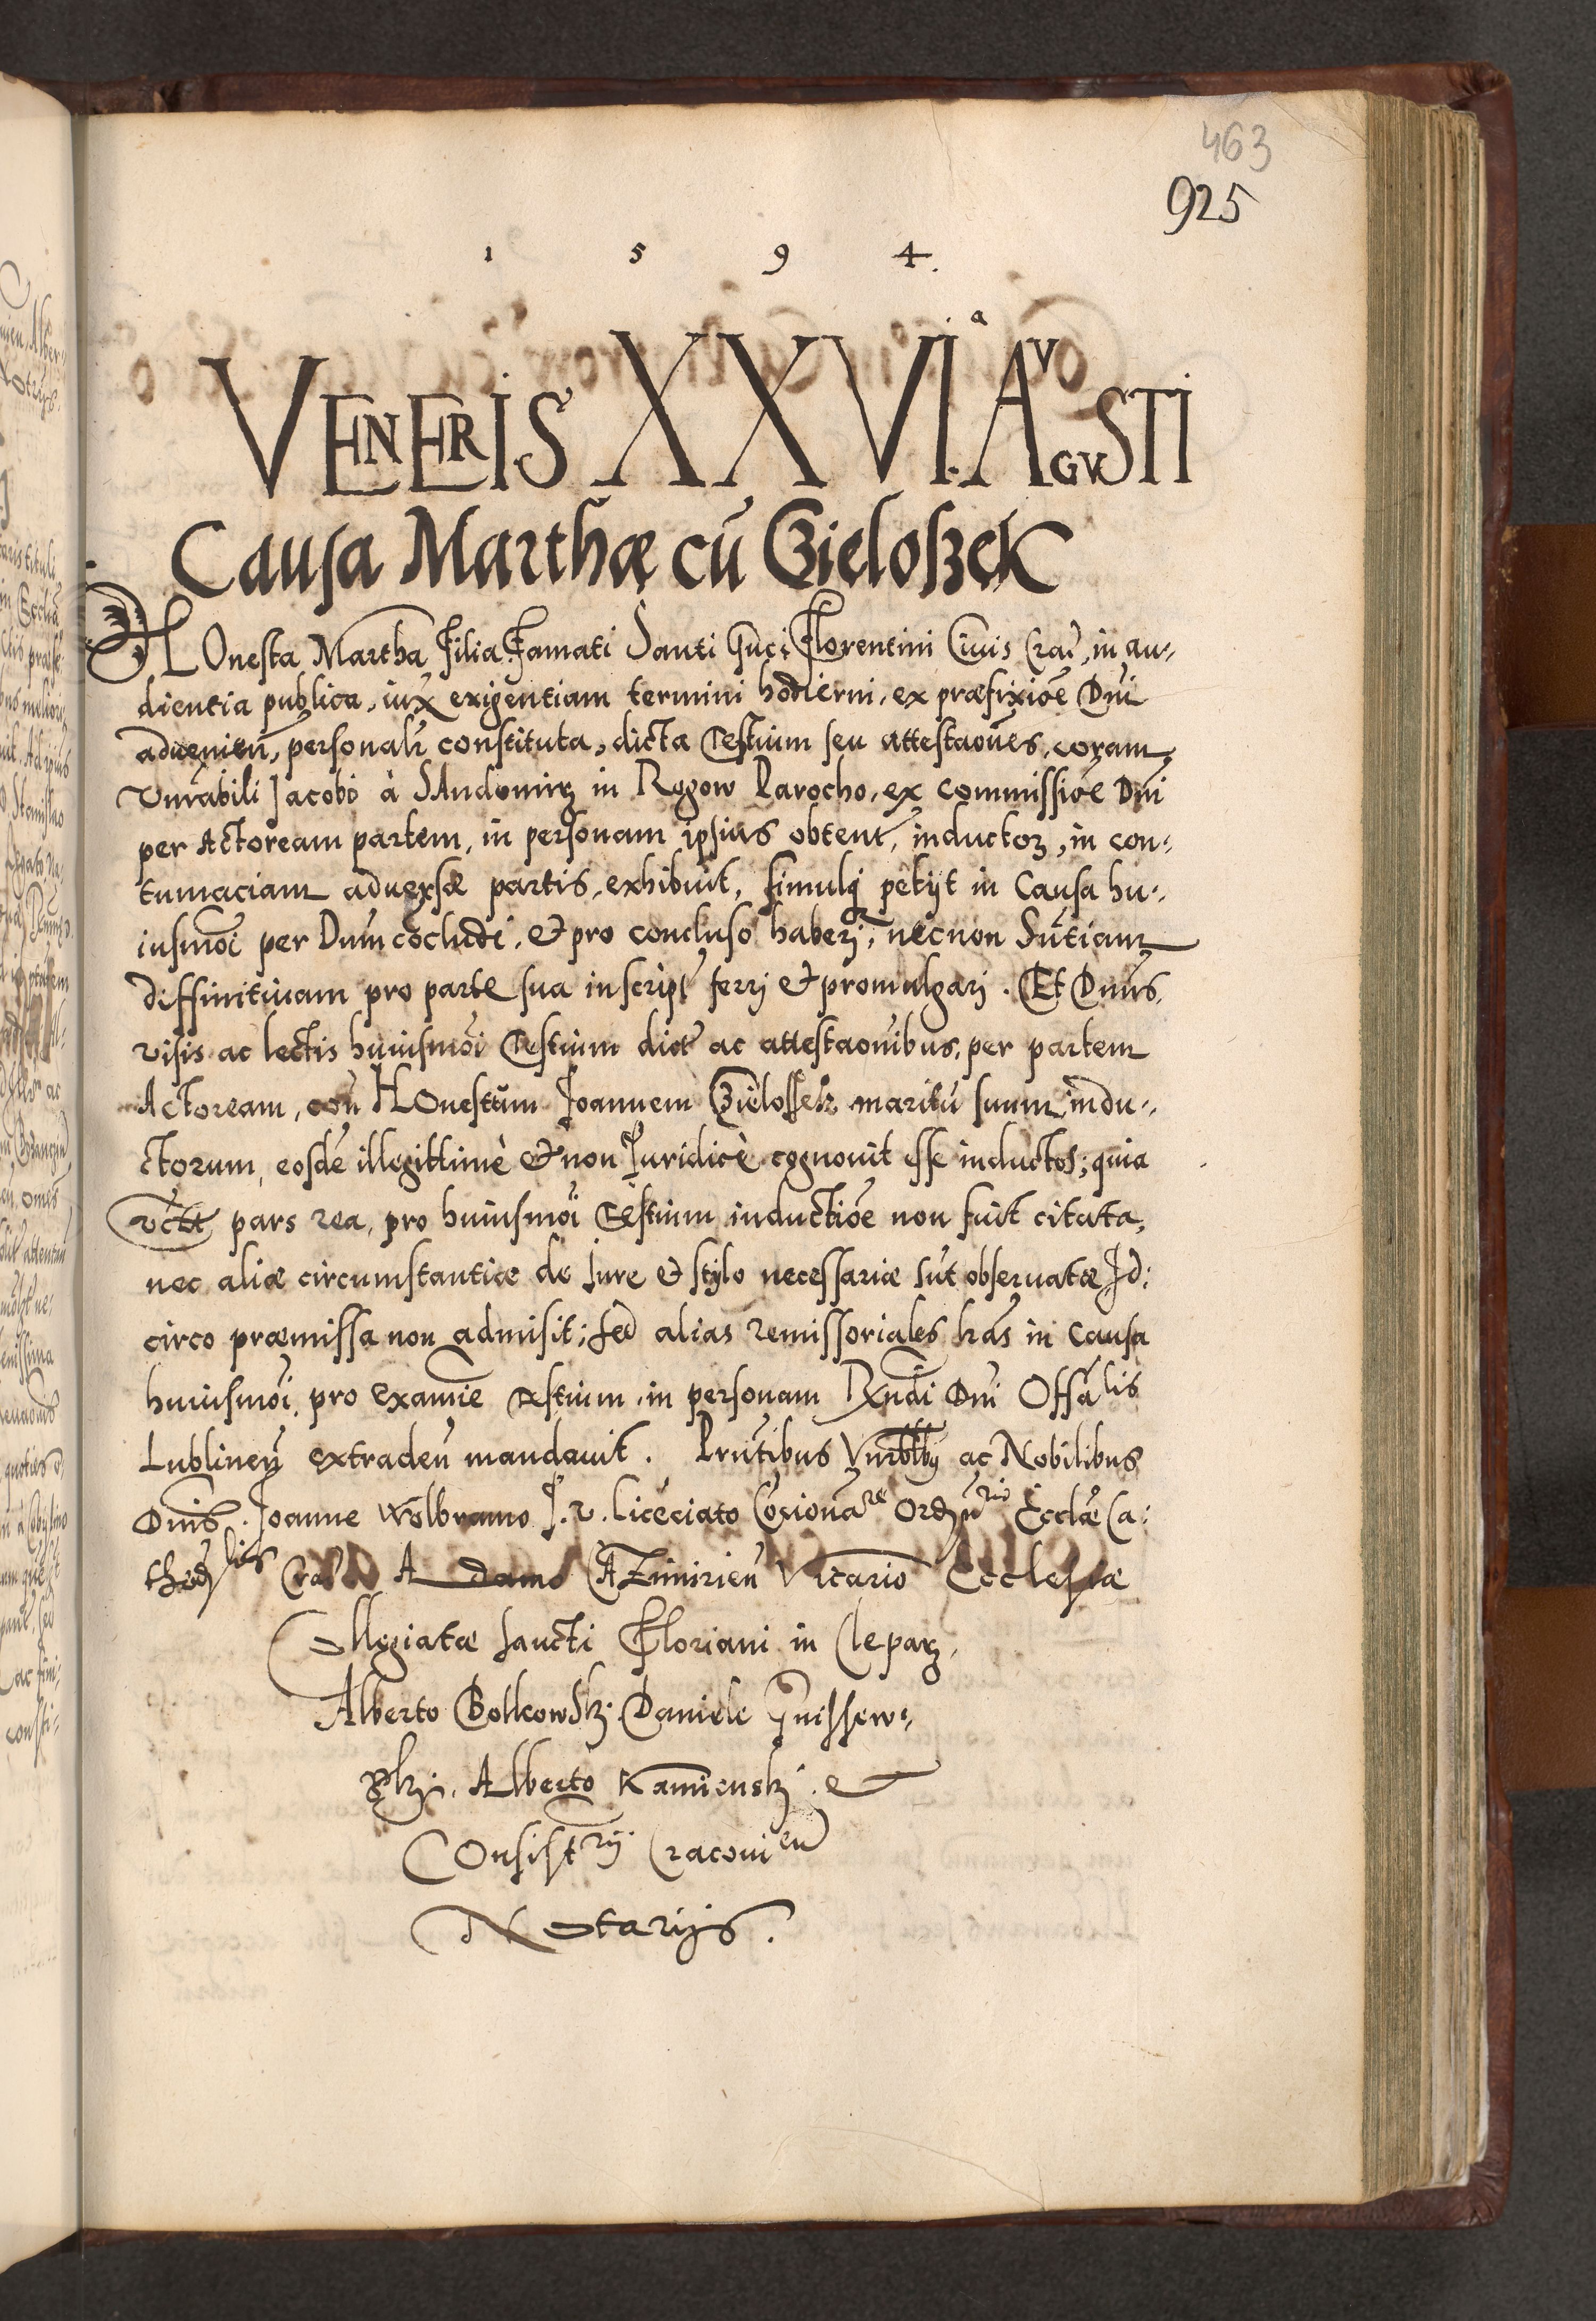 463
925
1 5 9 4.
VENERIS XXVI.a AVGVSTI
Causa Marthæ cū Gieloszek
HOnesta Martha Filia Famati Santi Guci Florentini Ciuis Crac, in au-
dientia publica, iux exigentiam termini hodierni, ex præfixiōe Dni
adueniēn, personalr constituta, dicta Testium seu attestaōnes, coram
Vnrabili Jacobo à SAndomirz in Rogow Parocho, ex commissiōe Dni
per Actoream partem, in personam ipsius obtent, inductor, in con-
tumaciam aduersæ partis, exhibuit, simulq petijt in Causa hu-
iusmoi per Dnum cōcludi, & pro concluso haberj, necnon Sntiam
diffinitiuam pro parte sua in script ferrj & promulgarj. Et Dnus
visis ac lectis huiusmoi Testium dict ac attestaonibus, per partem
Actoream, con HOnestum Joannem Gielossek maritū suum indu-
ctorum, eosdē illegittimè & non Juridicè cognouit esse inductos; quia
vctt pars rea, pro huiusmoi Testium inductiōe non fuit citata,
nec aliæ circumstantiæ de Jure & stylo necessariæ sūt obseruatæ Id:
circo præmissa non admisit; sed alias remissoriales lras in Causa
huiusmoi, pro Examīe testium, in personam Rndi Dni Offālis
Lublinen extraden mandauit. Prntibus Vnrblby ac Nobilibus
Dnis. Joanne Wolbramo J. V. licēciato Cōcionāre Ordnrio Eccłæ Ca:
thedlis Crac Adamo CAZimirien Vicario Ecclesiæ
Collegiatæ Sancti Floriani in Cleparz,
Alberto Bolkowsk. Daniele Gnissew-
sky. Alberto Kamiensk. &
COnsistrij Cracouien
NOtarijs.